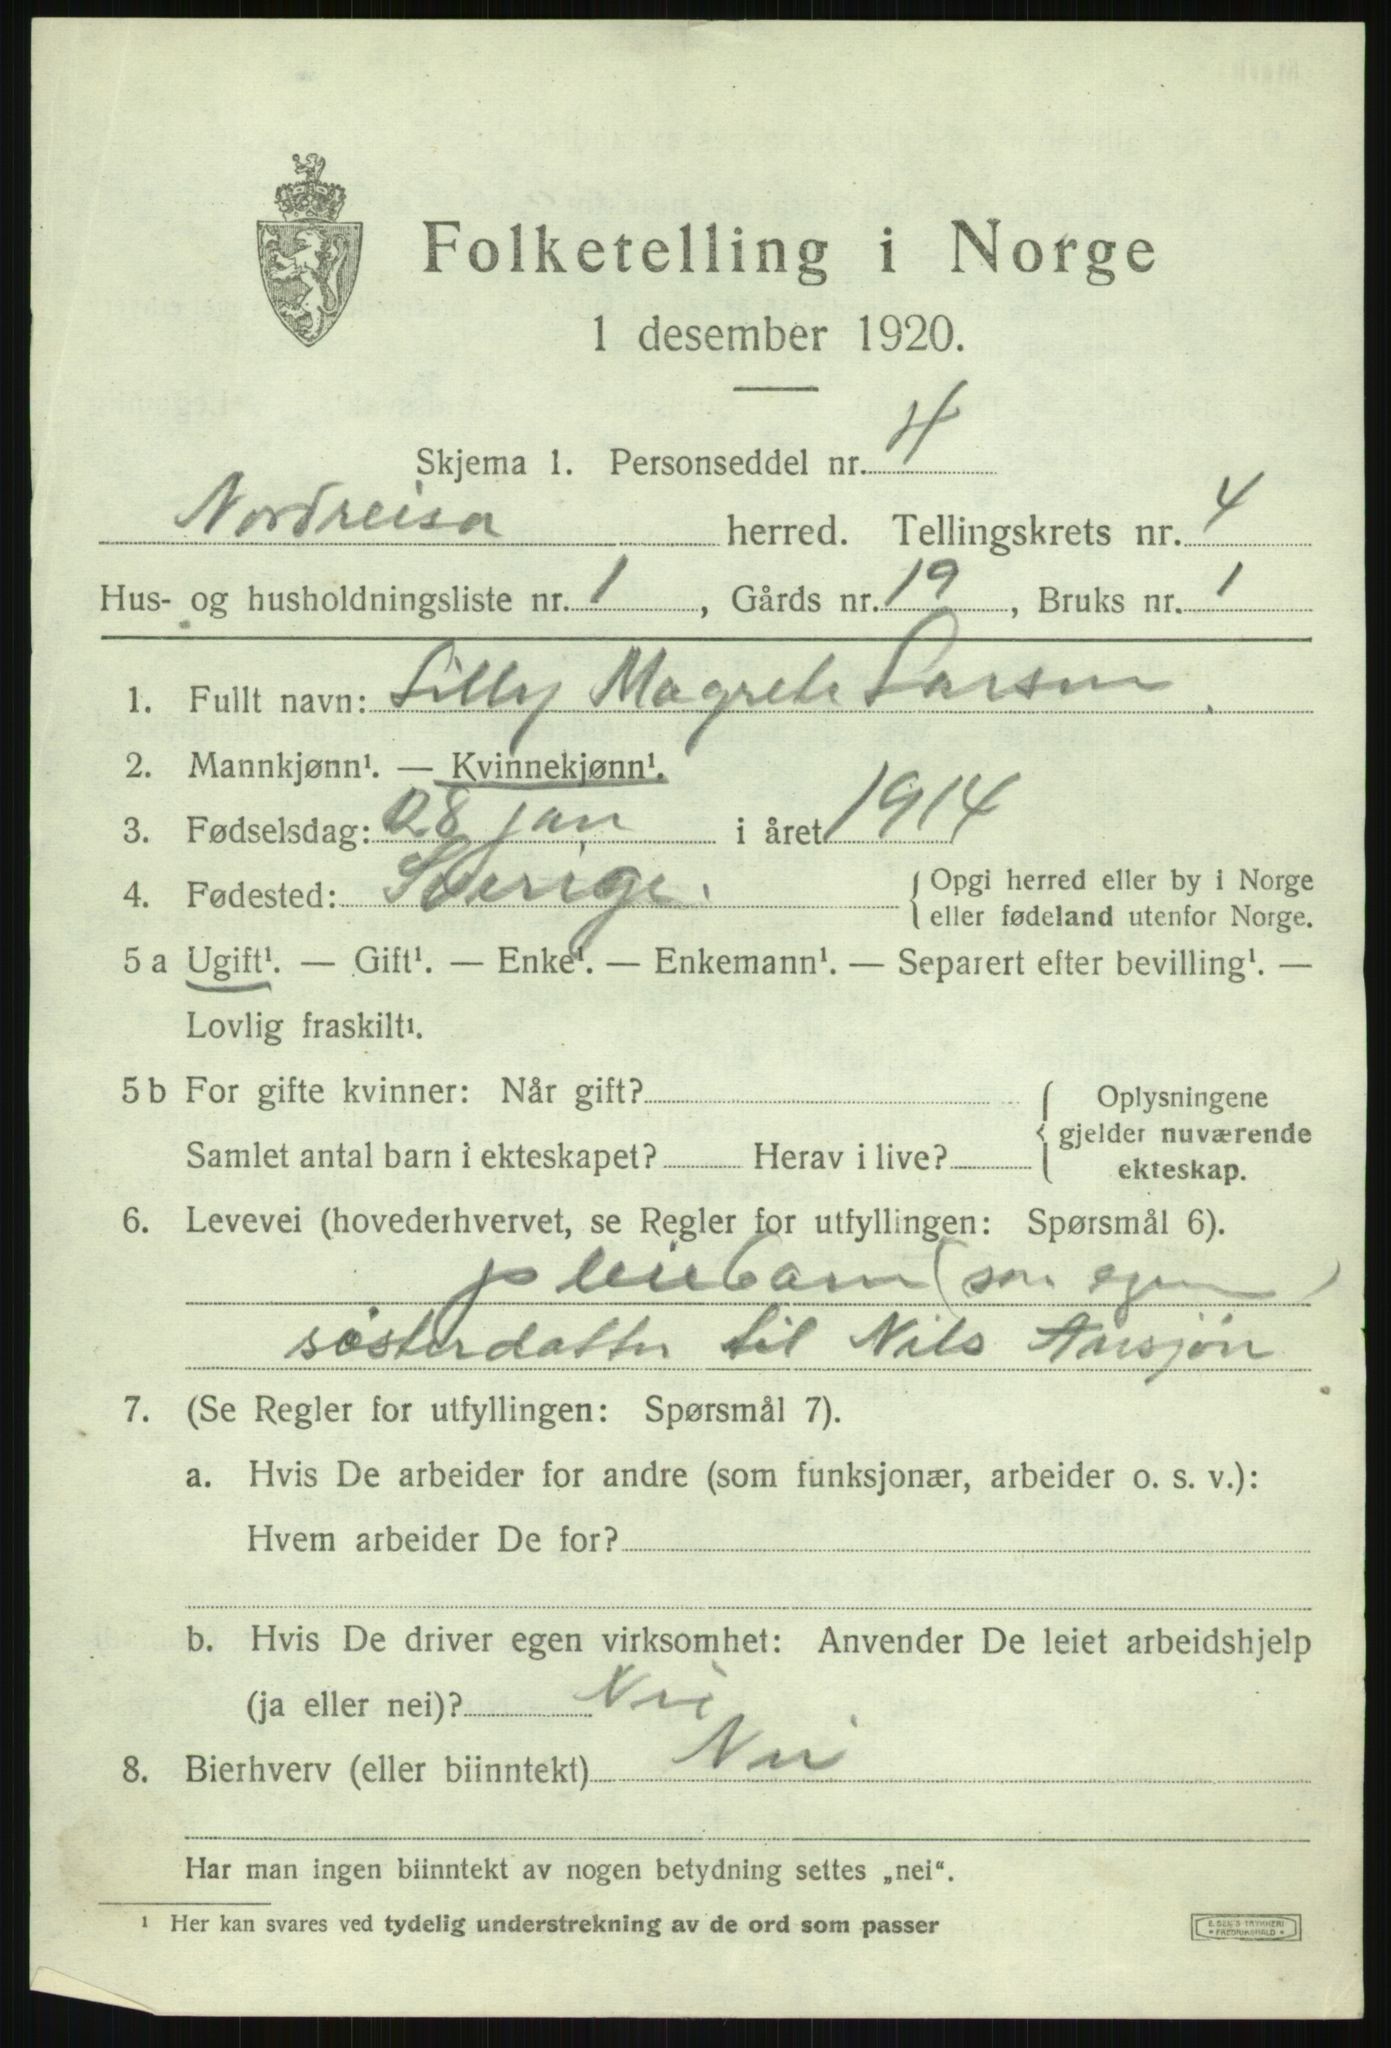 Folketelling i Norge
1 desember 1920.
Skjema 1. Personseddel nr. 4
Nordreisa herred. Tellingskrets nr. 4
Hus- og husholdningsliste nr. 1, Gårds nr. 19, Bruks nr. 1
1. Fullt navn: Lilly Magrete Larsen
2. Mannkjønn¹. — Kvinnekjønn¹.
3. Fødselsdag: 28 jan i året 1914
4. Fødested: Sverige. { Opgi herred eller by i Norge
eller fødeland utenfor Norge.
5 a Ugift¹. — Gift¹. — Enke¹. — Enkemann¹. — Separert efter bevilling¹. —
Lovlig fraskilt¹.
5 b For gifte kvinner: Når gift? { Oplysningene
gjelder nuværende
Samlet antal barn i ekteskapet? Herav i live?
ekteskap.
6. Levevei (hovederhvervet, se Regler for utfyllingen: Spørsmål 6).
pleiebarn (som egen)
søsterdatter til Nils
7. (Se Regler for utfyllingen: Spørsmål 7).
a. Hvis De arbeider for andre (som funksjonær, arbeider o. s. v.):
Hvem arbeider De for?
b. Hvis De driver egen virksomhet: Anvender De leiet arbeidshjelp
(ja eller nei)? Nei
8. Bierhverv (eller biinntekt) Nei
Har man ingen biinntekt av nogen betydning settes „nei“.
¹ Her kan svares ved tydelig understrekning av de ord som passer
FREDRIKSHALD